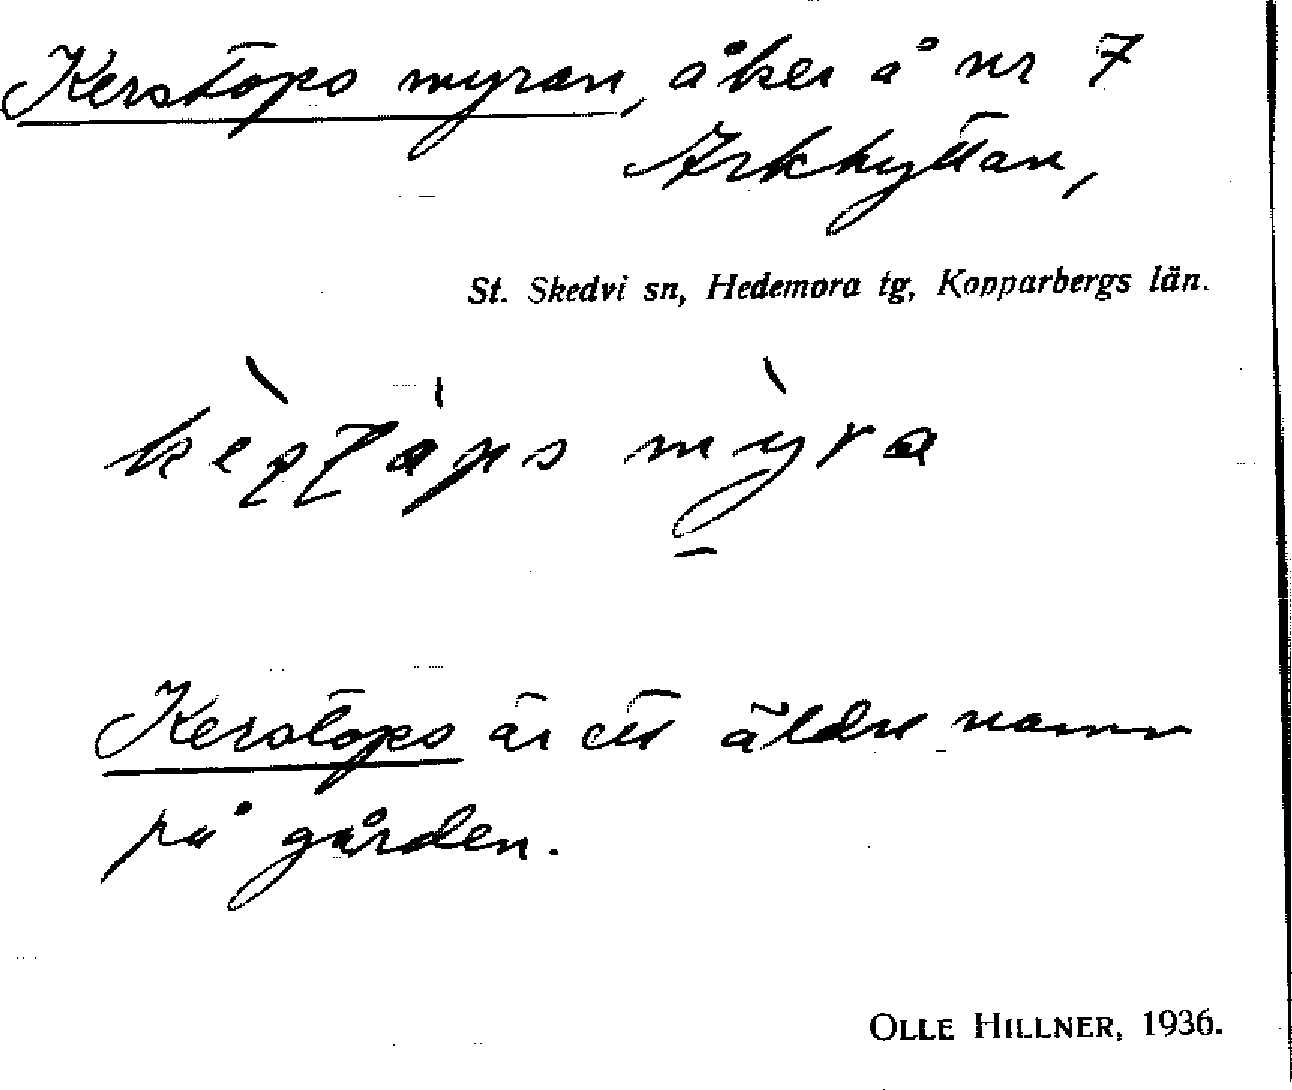 Kerstops myran, åker å nr 7
Arkhyttan,
St. Skedvi sn, Hedemora tg, Kopparbergs län.
myra
Kerstops är ett äldre namn
på gården.
OLLE HILLNER, 1936.